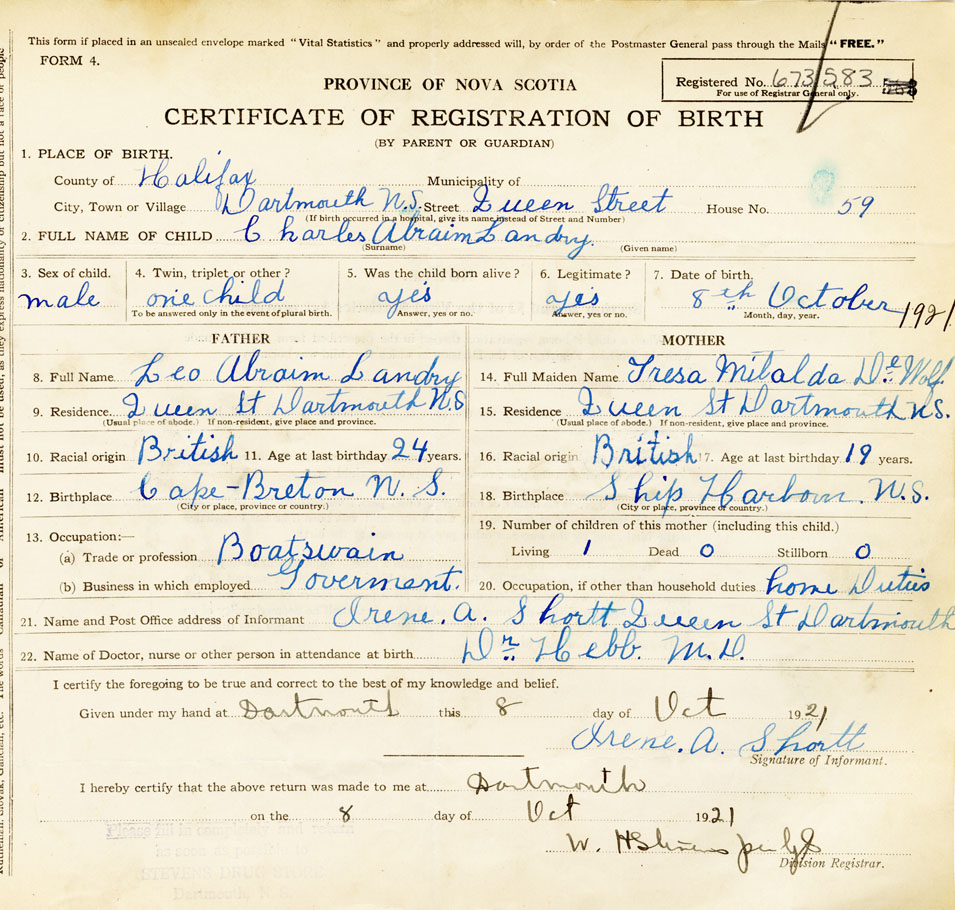 This form if placed in an unsealed envelope marked "Vital Statistics" and properly addressed will, by order of the Postmaster General pass through the Mails "FREE."
FORM 4.
PROVINCE OF NOVA SCOTIA
Registered No. 673583
For use of Registrar General only.
CERTIFICATE OF REGISTRATION OF BIRTH
(BY PARENT OR GUARDIAN)
1. PLACE OF BIRTH.
County of Halifax Municipality of
City, Town or Village Dartmouth N.S. Street Queen Street House No. 59
(If birth occurred in a hospital, give its name instead of Street and Number)
2. FULL NAME OF CHILD Charles Abraim Landry.
(Surname) (Given name)
3. Sex of child. 4. Twin, triplet or other? 5. Was the child born alive? 6. Legitimate? 7. Date of birth.
male one child yes yes 8th October 1921
To be answered only in the event of plural birth. Answer, yes or no. Answer, yes or no. Month, day, year.
FATHER MOTHER
8. Full Name Leo Abraim Landry 14. Full Maiden Name Tresa Mitalda De Wolf
9. Residence Queen St Dartmouth N.S 15. Residence Queen St Dartmouth N.S.
(Usual place of abode.) If non-resident, give place and province. (Usual place of abode.) If non-resident, give place and province.
10. Racial origin British 11. Age at last birthday 24 years. 16. Racial origin British 17. Age at last birthday 19 years.
12. Birthplace Cape-Breton N. S. 18. Birthplace Ship Harbour. N.S.
(City or place, province or country.) (City or place, province or country.)
13. Occupation:— 19. Number of children of this mother (including this child.)
(a) Trade or profession Boatswain Living 1 Dead 0 Stillborn 0
(b) Business in which employed Goverment. 20. Occupation, if other than household duties home Duties
21. Name and Post Office address of Informant Irene. A. Shortt Queen St Dartmouth
22. Name of Doctor, nurse or other person in attendance at birth Dr. Hebb. M.D.
I certify the foregoing to be true and correct to the best of my knowledge and belief.
Given under my hand at Dartmouth this 8 day of Oct 1921
Irene. A. Shortt
Signature of Informant.
I hereby certify that the above return was made to me at Dartmouth
on the 8 day of Oct 1921
Please fill in completely and return
as soon as possible to
STEVENS DRUG STORE
Dartmouth, N. S.
W. H
Division Registrar.